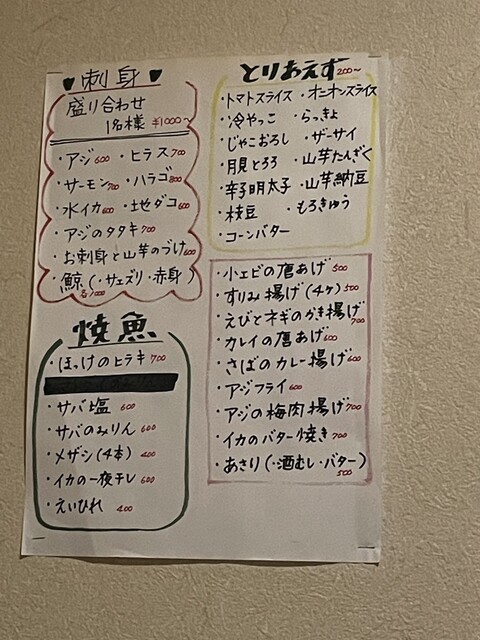 ♥刺身♥
盛り合わせ
1名様 ¥1000〜
・アジ 600 ・ヒラス 700
・サーモン 700 ・ハラゴ 800
・水イカ 600 ・地ダコ 600
・アジのタタキ 700
・お刺身と山芋のづけ 600
・鯨(・サエズリ・赤身)
各1000
焼魚
・ほっけのヒラキ 700
・サバ塩 600
・サバのみりん 600
・メザシ(4本) 400
・イカの一夜干し 600
・えいひれ 400
とりあえず 200〜
・トマトスライス ・オニオンスライス
・冷やっこ ・らっきょ
・じゃこおろし ・ザーサイ
・月見とろろ ・山芋たんざく
・辛子明太子 ・山芋納豆
・枝豆 ・もろきゅう
・コーンバター
・小エビの唐あげ 500
・すりみ揚げ(4ヶ) 500
・えびとネギのかき揚げ 700
・カレイの唐あげ 600
・さばのカレー揚げ 600
・アジフライ 600
・アジの梅肉揚げ 700
・イカのバター焼き 700
・あさり(・酒むし・バター)
500